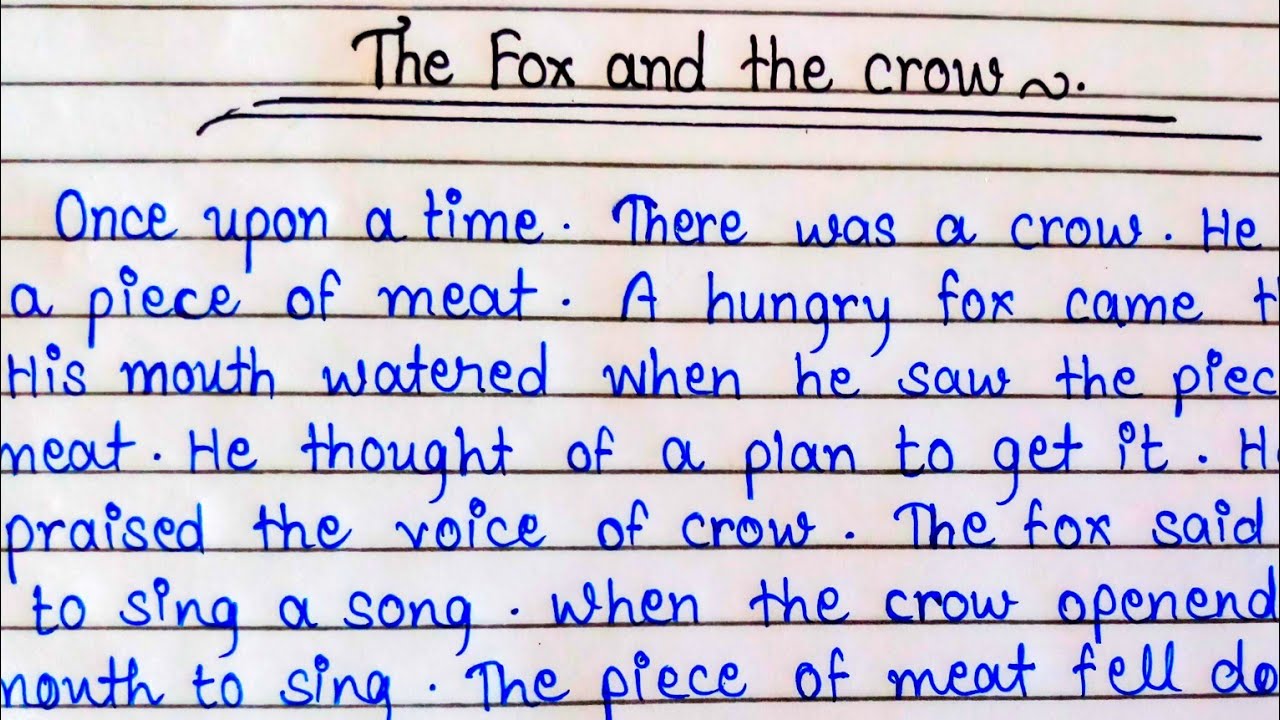 The Fox and the crow ~.
Once upon a time. There was a crow. He
a piece of meat. A hungry fox came
His mouth watered when he saw the piec
meat. He thought of a plan to get it. H
praised the voice of crow. The fox said
to sing a song. when the crow openend
mouth to sing. The piece of meat fell do